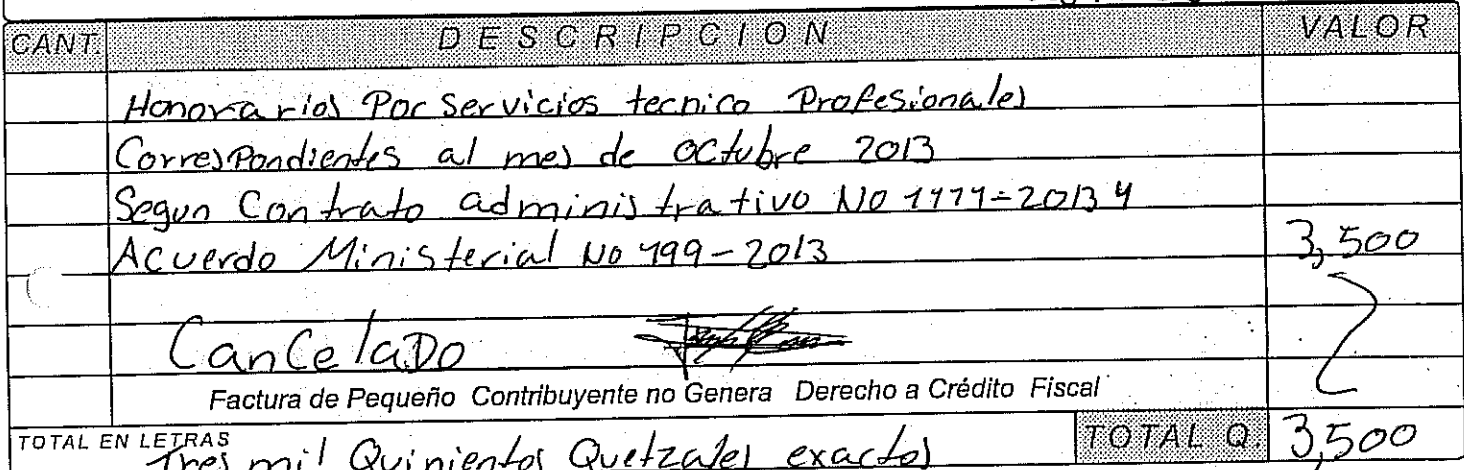 CANT. DESCRIPCION VALOR
Honorarios Por Servicios tecnico Profesionales
Correspondientes al mes de octubre 2013
Segun Contrato administrativo No 1111-2013 y
Acuerdo Ministerial No 199-2013 3,500
CanCelaDo
Factura de Pequeño Contribuyente no Genera Derecho a Crédito Fiscal
TOTAL EN LETRAS Tres mil Quinientos Quetzales exactos TOTAL Q. 3,500